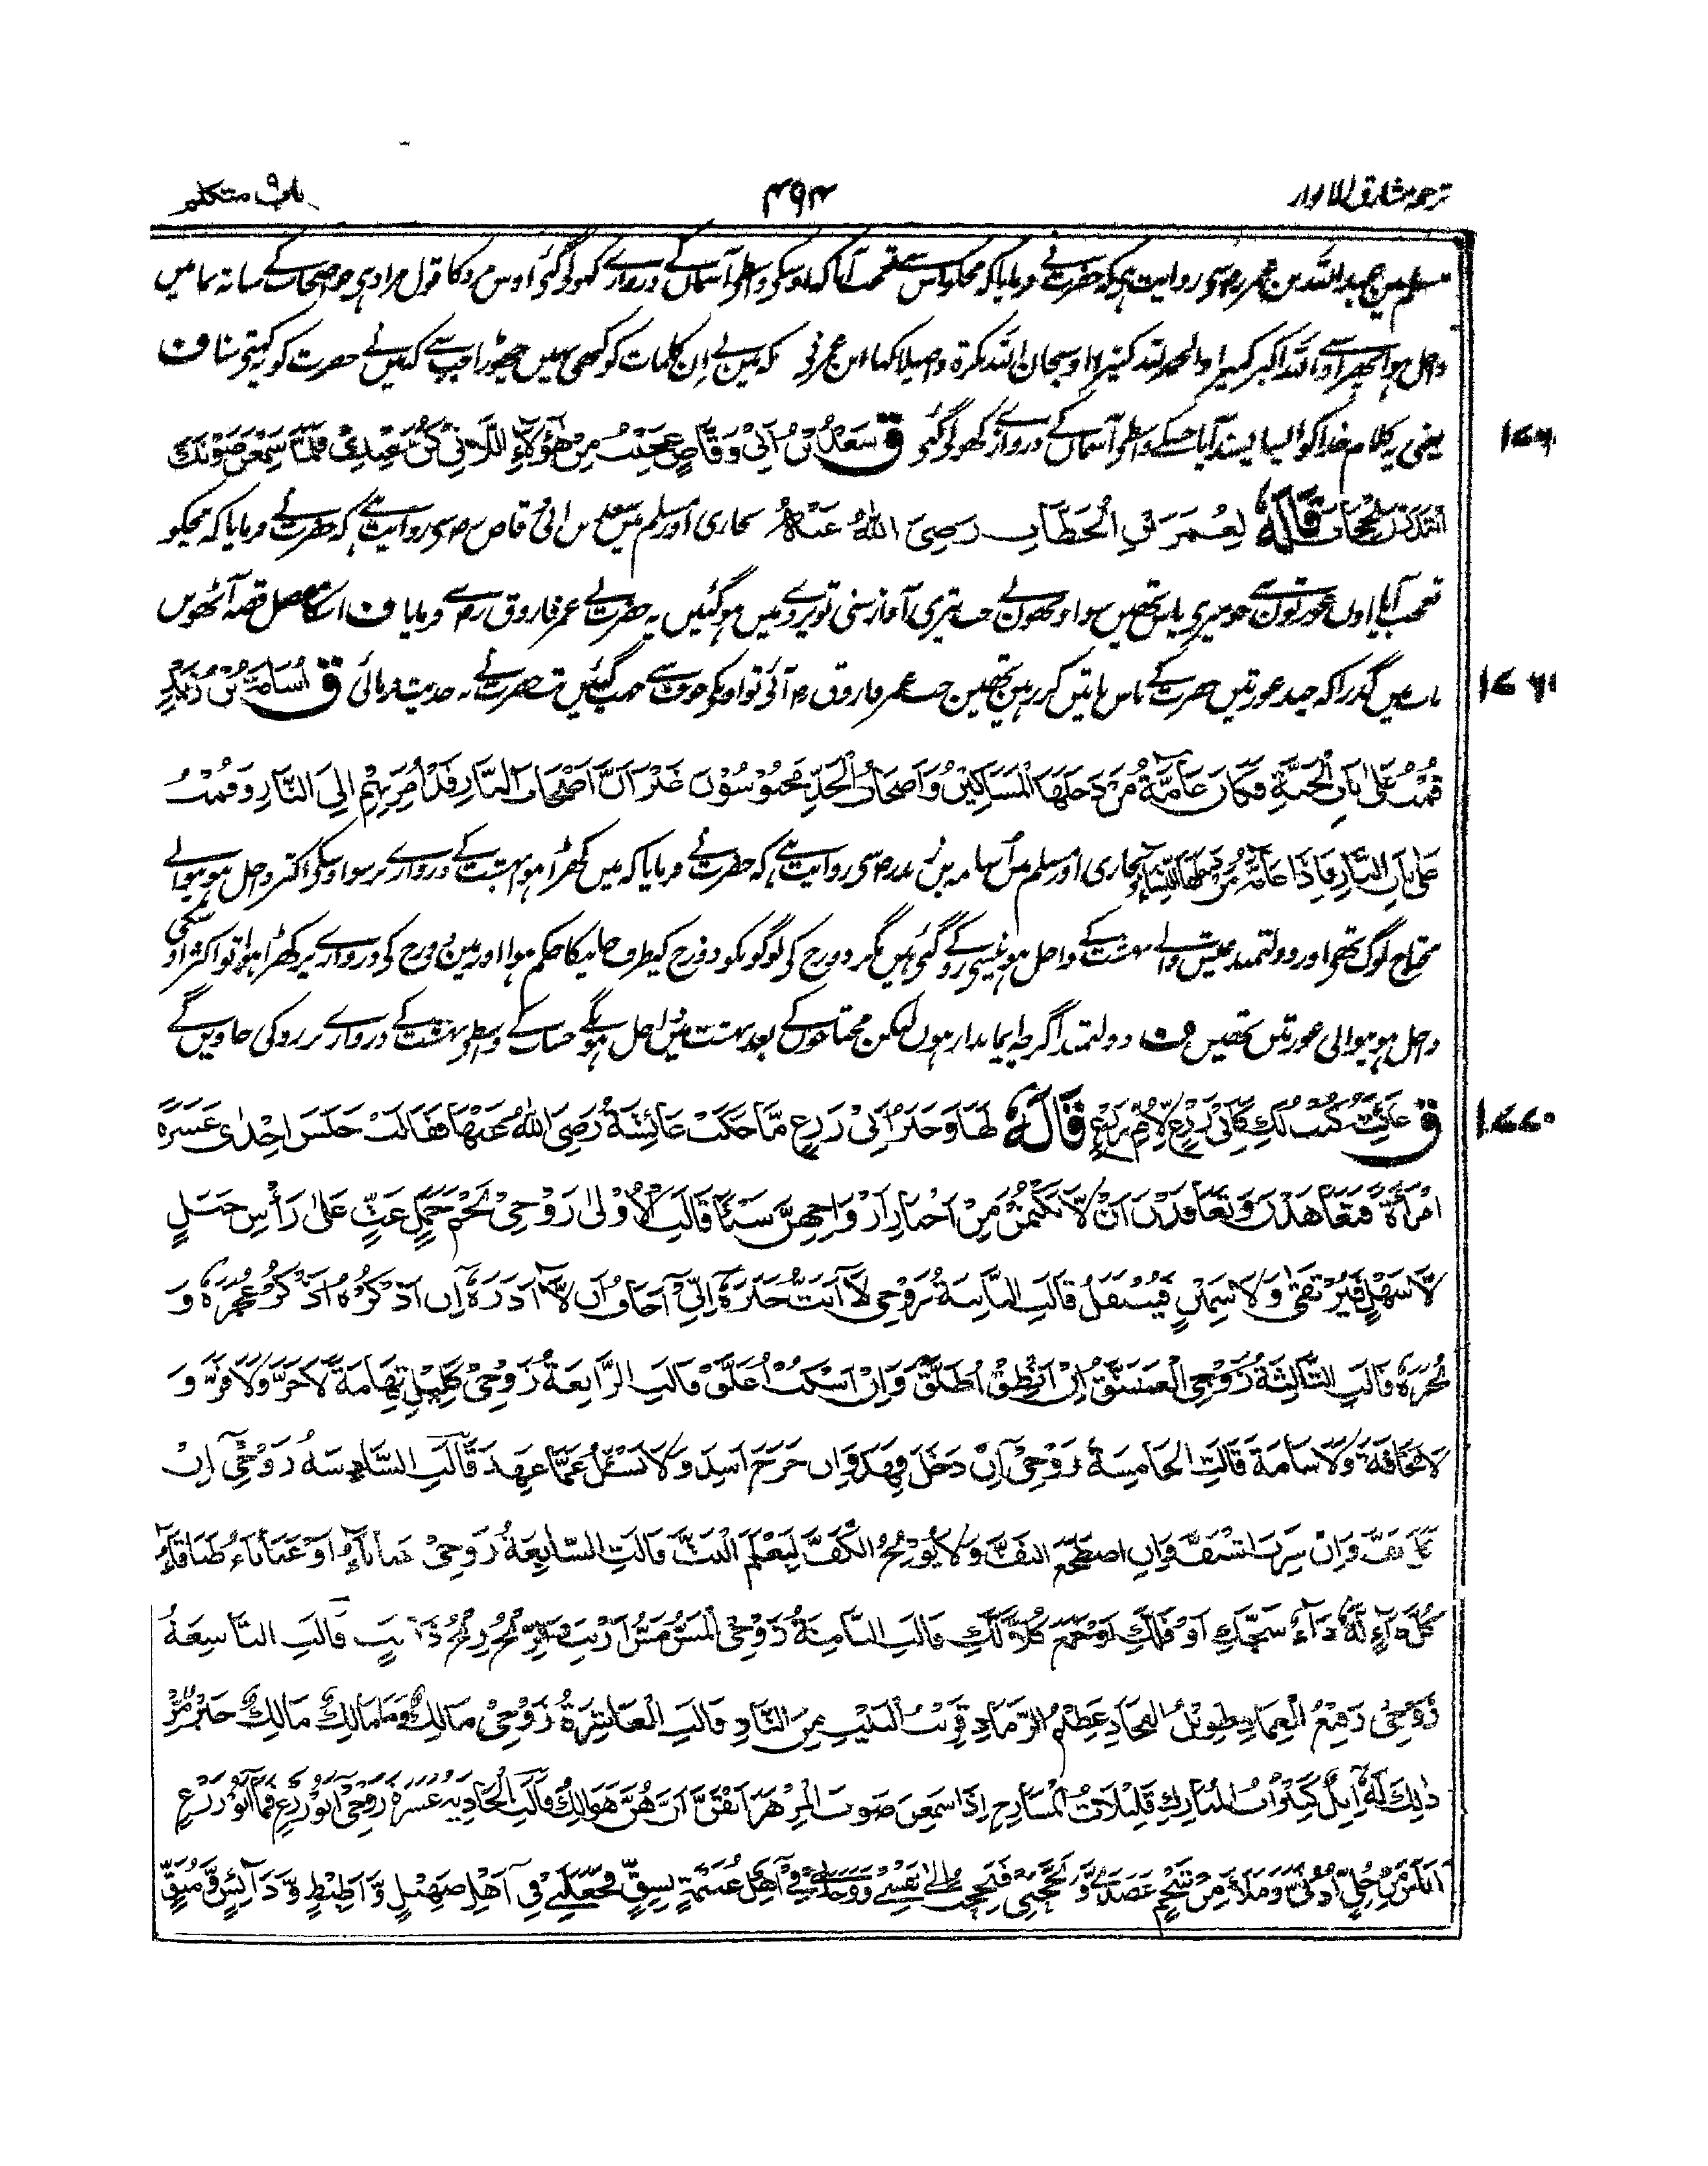 ترجمہ مشارق الانوار
۴۹۴
باب۹ متکلم
مسلم میں عبداللہ بن عمر رض سی روایت ہی کہ حضرت نے فرمایا کہ مجکو اس سے تعجب آیا کہ اوسکی واسطے آسمان کے دروازے کھولے گئے اوس مرد کا قول مراد ہی جو اصحاب کے ساتہ نماز میں
داخل ہوا پھر اوسے اللہ اکبر کبیرا والحمد للہ کثیرا وسبحان اللہ بکرۃ واصیلا کہا ابن عمر نے کہ میں نے ان کلمات کو کبھی نہیں چھوڑا جب سے کہ میں نے حضرت کو یہ کہتی سنا ف
یعنی یہ کلام خدا کو ایسا پسند آیا جسکے واسطے آسمان کے دروازے کھولے گئے ق سَعْدُ بْنُ اَبِیْ وَقَّاصٍ عَجِبْتُ مِنْ هٰؤُلَاءِ اللَّاتِیْ كُنَّ عِنْدِیْ فَلَمَّا سَمِعْنَ صَوْتَكَ
۱۷۶۰
ابْتَدَرْنَ الْحِجَابَ قَالَهٗ لِعُمَرَ بْنِ الْخَطَّابِ رَضِیَ اللهُ عَنْهُ بخاری اور مسلم میں سعد بن ابی وقاص رض سی روایت ہے کہ حضرت نے فرمایا کہ مجکو
تعجب آیا اون عورتوں سے جو میری پاس تھیں سو اونھوں نے جب تیری آواز سنی تو پردے میں ہو گئیں یہ حضرت نے عمر فاروق رض سے فرمایا ف اسکا مفصل قصہ آٹھویں
باب میں گذرا کہ چند عورتیں حضرت کے پاس باتیں کر رہیں تھین جب عمر فاروق رض آئی تو اونکے خوف سے چھپ گئیں تب حضرت نے یہ حدیث فرمائی ق اُسَامَةُ بْنُ زَیْدٍ
۱۷۶۱
قُمْتُ عَلٰی بَابِ الْجَنَّةِ فَكَانَ عَامَّةُ مَنْ دَخَلَهَا الْمَسَاكِیْنُ وَاَصْحَابُ الْجَدِّ مَحْبُوْسُوْنَ غَیْرَ اَنَّ اَصْحَابَ النَّارِ قَدْ اُمِرَ بِهِمْ اِلَی النَّارِ وَقُمْتُ
عَلٰی بَابِ النَّارِ فَاِذَا عَامَّةُ مَنْ دَخَلَهَا النِّسَاءُ بخاری اور مسلم میں اسامہ بن زید رض سی روایت ہے کہ حضرت نے فرمایا کہ میں کھڑا ہوا بہشت کے دروازے پر سو اوسکی اکثر داخل ہونیوالے
محتاج لوگ تھی اور دولتمند عیش والے بہشت کے داخل ہونیسے روکے گئی ہیں مگر دوزخ کی لوگونکو دوزخ کیطرف جانیکا حکم ہوا اور میں دوزخ کی دروازے پر کھڑا ہوا تو اکثر اوسکی
داخل ہونیوالی عورتیں تھیں ف دولتمند اگرچہ ایماندار ہوں لیکن محتاجوں کے بعد بہشت میں داخل ہونگے حساب کے واسطے بہشت کے دروازے پر روکے جاویں گے
ق عَائِشَةُ كُنْتُ لَكِ كَاَبِیْ زَرْعٍ لِاُمِّ زَرْعٍ قَالَهٗ لَهَا وَخَبَرُ اَبِیْ زَرْعٍ مَّا حَكَتْ عَائِشَةُ رَضِیَ اللهُ عَنْهَا فَقَالَتْ جَلَسَ اِحْدٰی عَشَرَةَ
۱۷۷۰
امْرَأَةً فَتَعَاهَدْنَ وَتَعَاقَدْنَ اَنْ لَّا یَكْتُمْنَ مِنْ اَخْبَارِ اَزْوَاجِهِنَّ شَیْئًا قَالَتِ الْاُوْلٰی زَوْجِیْ لَحْمُ جَمَلٍ غَثٍّ عَلٰی رَأْسِ جَبَلٍ
لَّا سَهْلٍ فَیُرْتَقٰی وَلَا سَمِیْنٍ فَیُنْتَقَلُ قَالَتِ الثَّانِیَةُ زَوْجِیْ لَا اَبُثُّ خَبَرَهٗ اِنِّیْ اَخَافُ اَنْ لَّا اَذَرَهٗ اِنْ اَذْكُرْهُ اَذْكُرْ عُجَرَهٗ وَ
بُجَرَهٗ قَالَتِ الثَّالِثَةُ زَوْجِی الْعَشَنَّقُ اِنْ اَنْطِقْ اُطَلَّقْ وَاِنْ اَسْكُتْ اُعَلَّقْ قَالَتِ الرَّابِعَةُ زَوْجِیْ كَلَیْلِ تِهَامَةَ لَا حَرَّ وَلَا قَرَّ وَ
لَا مَخَافَةَ وَلَا سَاٰمَةَ قَالَتِ الْخَامِسَةُ زَوْجِیْ اِنْ دَخَلَ فَهِدَ وَاِنْ خَرَجَ اَسِدَ وَلَا یَسْئَلُ عَمَّا عَهِدَ قَالَتِ السَّادِسَةُ زَوْجِیْ اِنْ
اَكَلَ لَفَّ وَاِنْ شَرِبَ اشْتَفَّ وَاِنِ اضْطَجَعَ الْتَفَّ وَلَا یُوْلِجُ الْكَفَّ لِیَعْلَمَ الْبَثَّ قَالَتِ السَّابِعَةُ زَوْجِیْ غَیَایَاءُ اَوْ عَیَایَاءُ طَبَاقَاءُ
كُلُّ دَاءٍ لَهٗ دَاءٌ شَجَّكِ اَوْ فَلَّكِ اَوْ جَمَعَ كُلًّا لَّكِ قَالَتِ الثَّامِنَةُ زَوْجِی الْمَسُّ مَسُّ اَرْنَبٍ وَالرِّیْحُ رِیْحُ زَرْنَبٍ قَالَتِ التَّاسِعَةُ
زَوْجِیْ رَفِیْعُ الْعِمَادِ طَوِیْلُ النِّجَادِ عَظِیْمُ الرَّمَادِ قَرِیْبُ الْبَیْتِ مِنَ النَّادِ قَالَتِ الْعَاشِرَةُ زَوْجِیْ مَالِكٌ وَمَا مَالِكٌ مَالِكٌ خَیْرٌ مِّنْ
ذٰلِكَ لَهٗ اِبِلٌ كَثِیْرَاتُ الْمَبَارِكِ قَلِیْلَاتُ الْمَسَارِحِ اِذَا سَمِعْنَ صَوْتَ الْمِزْهَرِ اَیْقَنَّ اَنَّهُنَّ هَوَالِكُ قَالَتِ الْحَادِیَةَ عَشْرَةَ زَوْجِیْ اَبُوْ زَرْعٍ فَمَا اَبُوْ زَرْعٍ
اَنَاسَ مِنْ حُلِیٍّ اُذُنَیَّ وَمَلَاَ مِنْ شَحْمٍ عَضُدَیَّ وَبَجَّحَنِیْ فَبَجِحَتْ اِلَیَّ نَفْسِیْ وَوَجَدَنِیْ فِیْ اَهْلِ غُنَیْمَةٍ بِشِقٍّ فَجَعَلَنِیْ فِیْ اَهْلِ صَهِیْلٍ وَّاَطِیْطٍ وَّدَائِسٍ وَّمُنَقٍّ